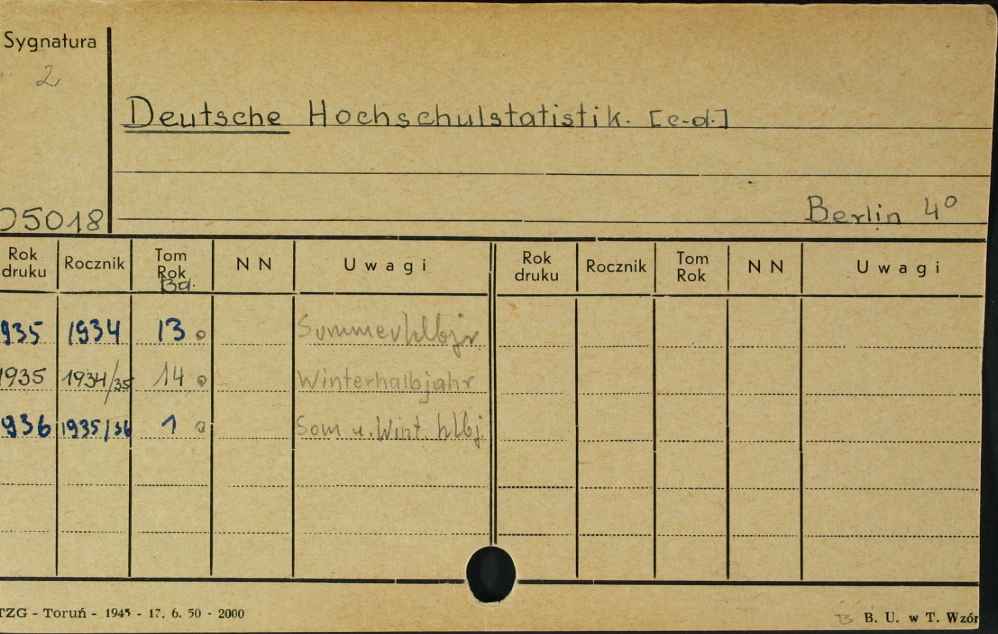 Sygnatura
2
Deutsche Hochschulstatistik. [c.d.]
Berlin 4°
05018
Rok druku Rocznik Tom Rok Bd. NN Uwagi Rok druku Rocznik Tom Rok NN Uwagi
935 1934 13 Sommerhlbjr
1935 1934/35 14 Winterhalbjahr
936 1935/36 1 Som u. Wint. hlbj.
TZG - Toruń - 1945 - 17. 6. 50 - 2000
B. U. w T. Wzór